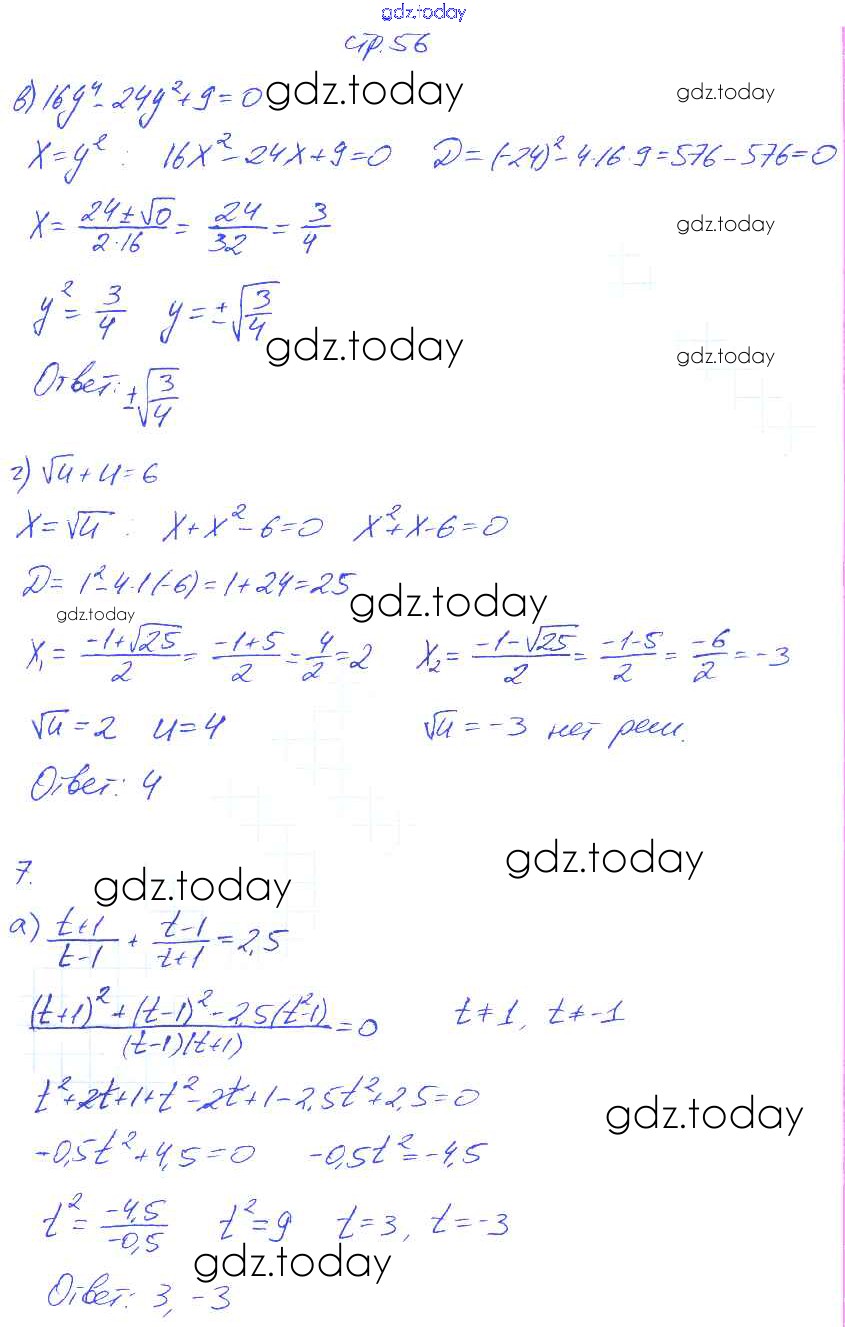 gdz.today
стр.56
в) 16y⁴ - 24y² + 9 = 0 gdz.today gdz.today
x = y² : 16x² - 24x + 9 = 0 D = (-24)² - 4·16·9 = 576 - 576 = 0
x = (24 ± √0)/(2·16) = 24/32 = 3/4 gdz.today
y² = 3/4 y = ±√(3/4)
gdz.today gdz.today
Ответ: ±√(3/4)
г) √u + u = 6
x = √u : x + x² - 6 = 0 x² + x - 6 = 0
D = 1² - 4·1(-6) = 1 + 24 = 25
gdz.today gdz.today
x₁ = (-1+√25)/2 = (-1+5)/2 = 4/2 = 2 x₂ = (-1-√25)/2 = (-1-5)/2 = -6/2 = -3
√u = 2 u = 4 √u = -3 нет реш.
Ответ: 4
7. gdz.today gdz.today
а) (t+1)/(t-1) + (t-1)/(t+1) = 2,5
((t+1)² + (t-1)² - 2,5(t²-1))/((t-1)(t+1)) = 0 t ≠ 1, t ≠ -1
t² + 2t + 1 + t² - 2t + 1 - 2,5t² + 2,5 = 0
gdz.today
-0,5t² + 4,5 = 0 -0,5t² = -4,5
t² = -4,5/-0,5 t² = 9 t = 3, t = -3
gdz.today
Ответ: 3, -3